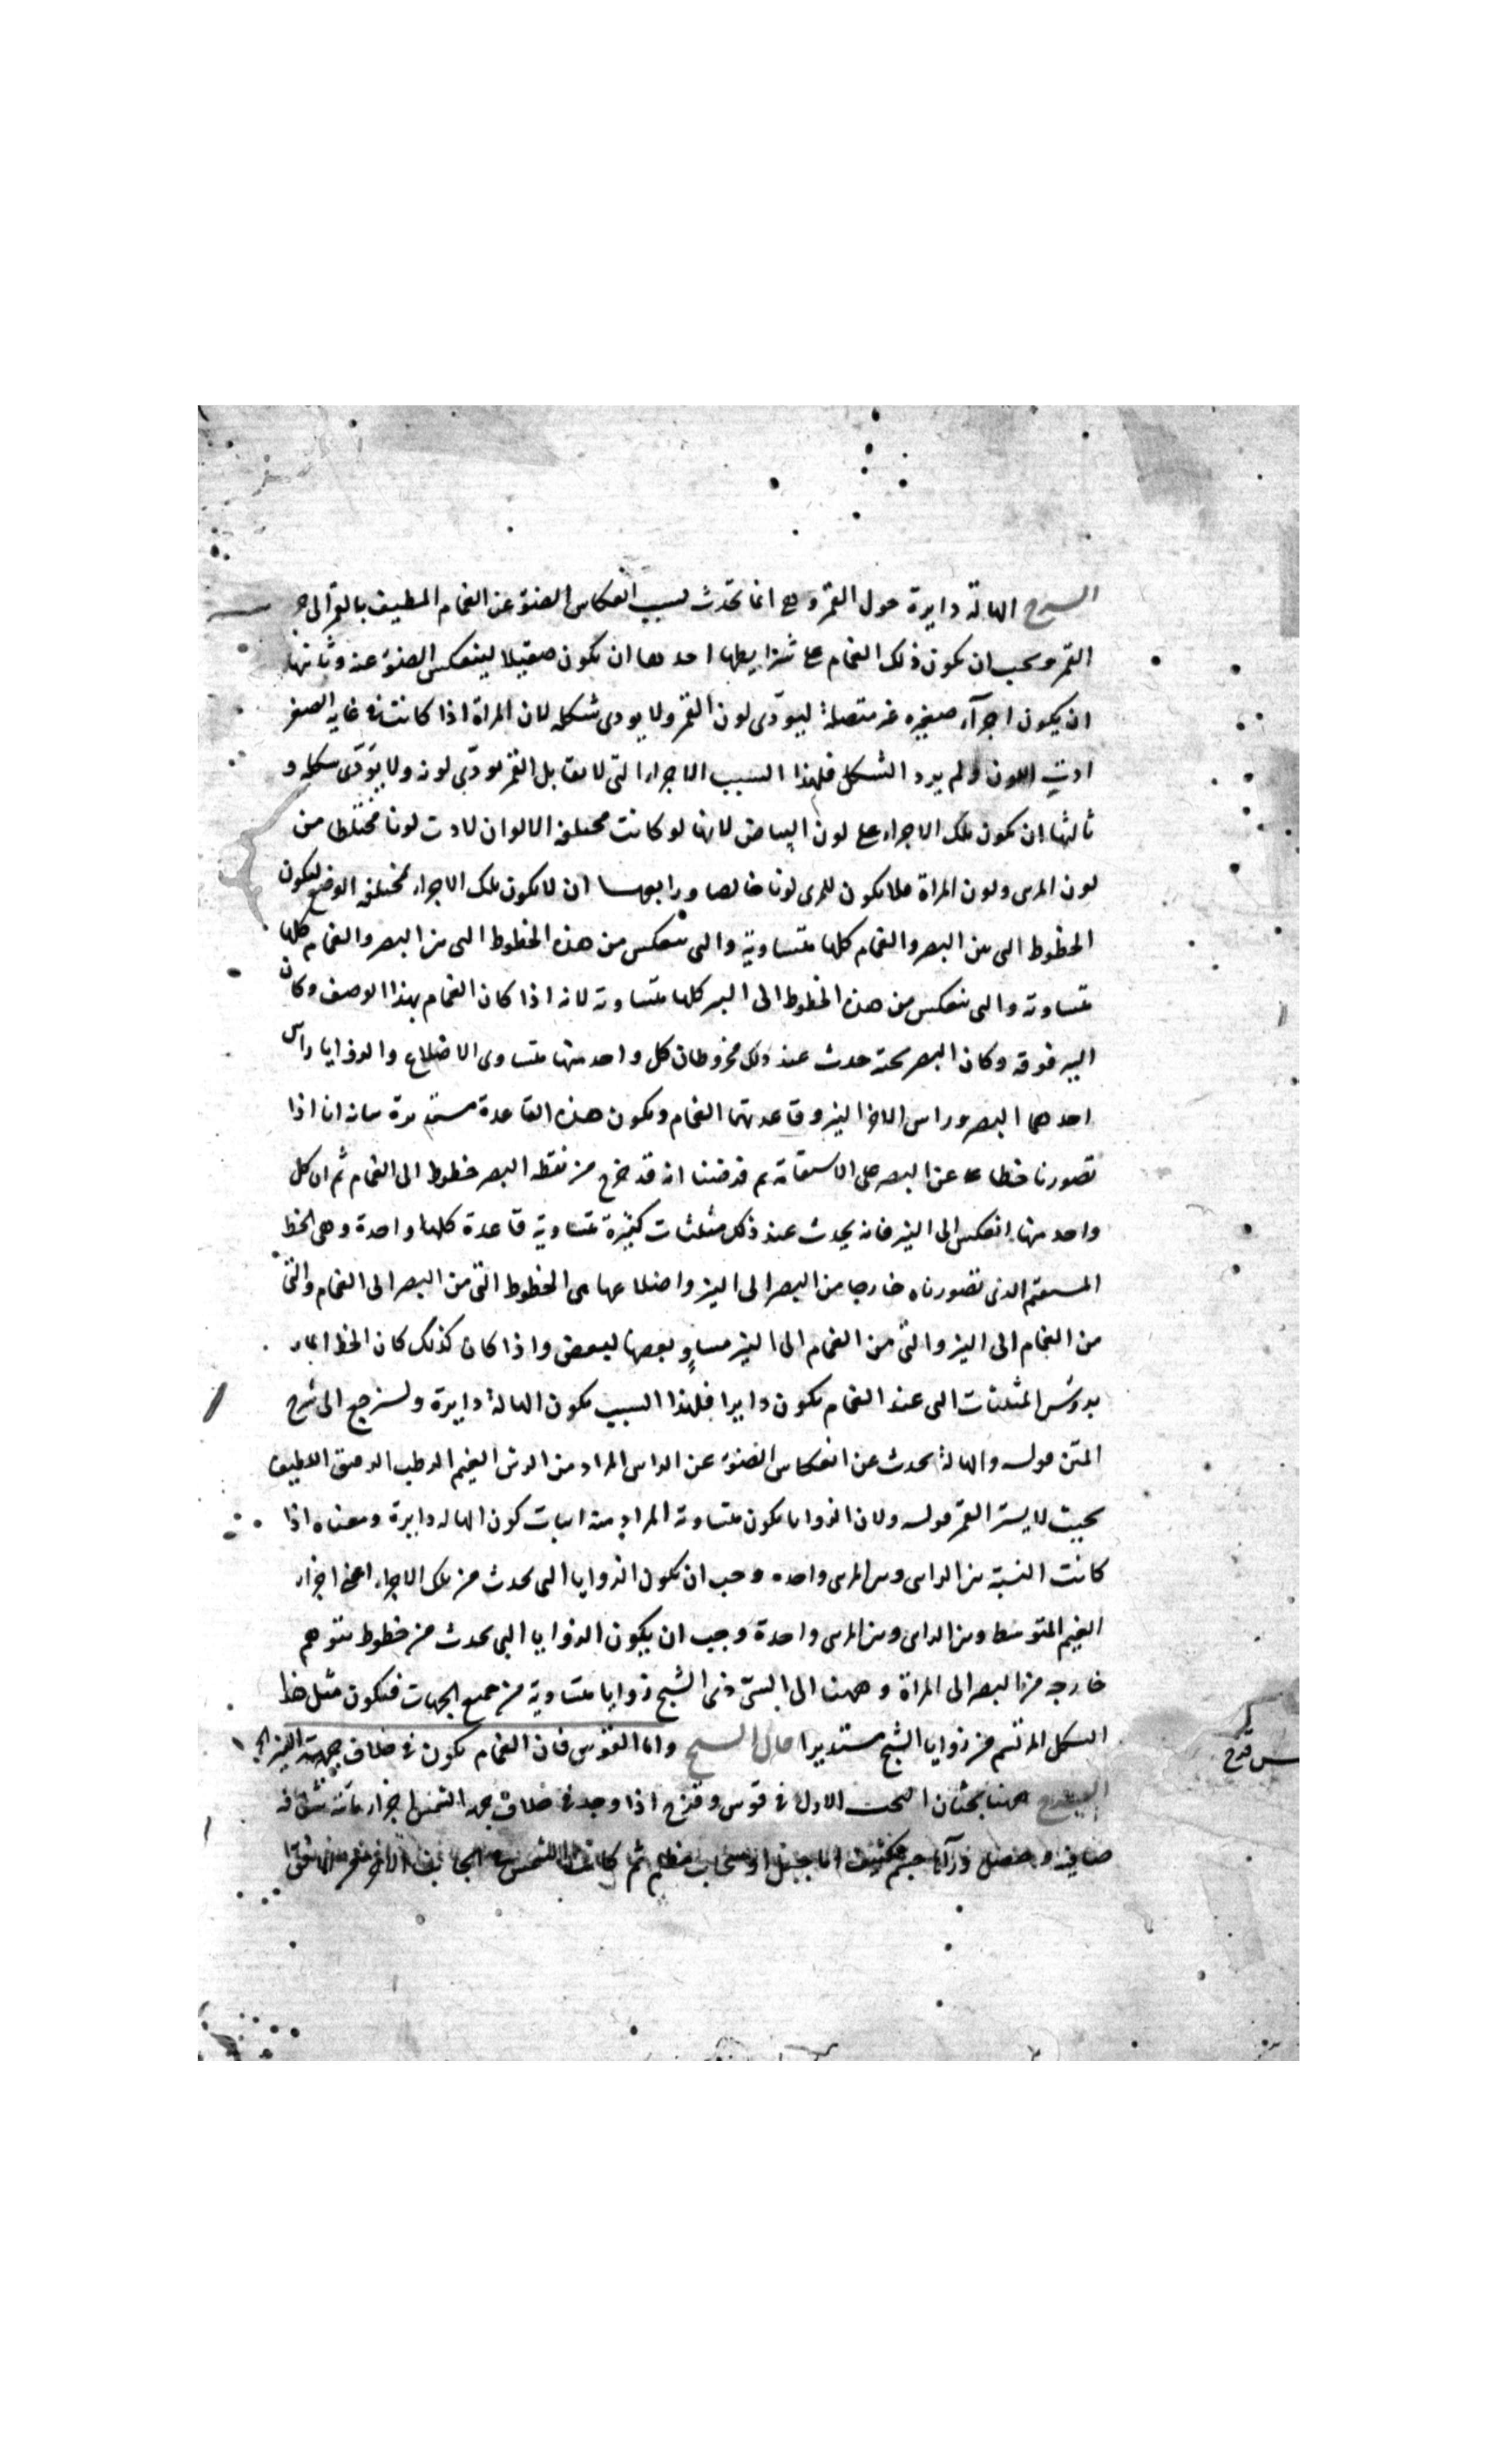 الشرح الهالة دايرة حول القمر وهى انما تحدث لسبب انعكاس الضوء عن الغمام المطيف بالقمر الى
القمر ويجب ان يكون ذلك الغمام على شرايطها احدها ان يكون صقيلا لينعكس الضوء عنه وثانيها
ان يكون اجزآء صغيره غير متصلة ليودى لون القمر ولا يودى شكله لان المراة اذا كانت فى غايه الصغر
ادت اللون ولم يرد الشكل فلهذا السبب الاجزاء التى لا تقابل القمر تودى لونه ولا يودى شكله و
ثالثها ان يكون تلك الاجزاء على لون البياض لانها لو كانت مختلفه الالوان لادت لونا مختلطا من
لون المرى ولون المراة فلا يكون للمرى لونا خالصا ورابعها ان لا يكون تلك الاجزاء مختلفه الوضع ليكون
الخطوط التى بين البصر والغمام كلها متساوية والتى تنعكس من هذه الخطوط التى بين البصر والغمام كلها
متساوية والتى تنعكس من هذه الخطوط الى النير كلها متساوية لانه اذا كان الغمام بهذا الوصف وكان
النير فوقه وكان البصر تحته حدث عند ذلك مخروطان كل واحد منها متساوى الاضلاع والزوايا راس
احدهما البصر وراس الاخر النير وقاعدتهما الغمام ويكون هذه القاعدة مستديرة بيانه انا اذا
تصورنا خطا عن البصر على الاستقامة ثم فرضنا انه قد خرج من نقطه البصر خطوط الى الغمام ثم ان كل
واحد منها انعكس الى النير فانه يحدث عند ذلك مثلثات كثيرة متساوية قاعدة كلها واحدة وهى الخط
المستقيم الذى تصورناه خارجا من البصر الى النير واضلاعها هى الخطوط التى من البصر الى الغمام والتى
من الغمام الى النير والتى من الغمام الى النير مساو بعضها لبعض واذا كان كذلك كان الخط المار
بروس المثلثات التى عند الغمام يكون دايرا فلهذا السبب يكون الهالة دايرة ولنرجع الى شرح
المتن قوله والهالة تحدث عن انعكاس الضوء عن الراس المراد من الرش الغيم الرطب الرقيق اللطيف
بحيث لا يستر القمر قوله ولان الزوايا يكون متساوية المراد منه اثبات كون الهاله دايرة ومعناه اذا
كانت النسبة بين الراى وبين المرى واحده وجب ان يكون الزوايا التى تحدث من تلك الاجزاء اعنى اجزاء
الغيم المتوسط وبين الراى وبين المرى واحدة وجب ان يكون الزوايا التى تحدث من خطوط تتوهم
خارجه من البصر الى المراة وههنا الى الشى ذى الشبح زوايا متساوية من جميع الجهات فيكون مثل هذا
الشكل المرتسم من زوايا الشبح مستديرا قال الشيخ واما القوس فان الغمام يكون فى خلاف جهة النير
الشرح ههنا بحثان البحث الاول فى قوس وقزح اذا وجد فى خلاف جهة الشمس اجزاء مائية شفافه
صافيه وحصل ورآها جسم كثيف اما جبل او سحاب مظلم ثم كانت الشمس